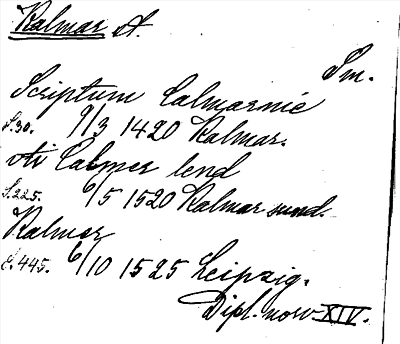 Kalmar st.
Sm.
Scriptum Calmarnie
S.30. 9/3 1420 Kalmar.
Ati Calmer lend
S.225. 6/5 1520 Kalmar sund.
Kalmar
S.445. 6/10 1525 Leipzig.
Dipl. norv. XIV.